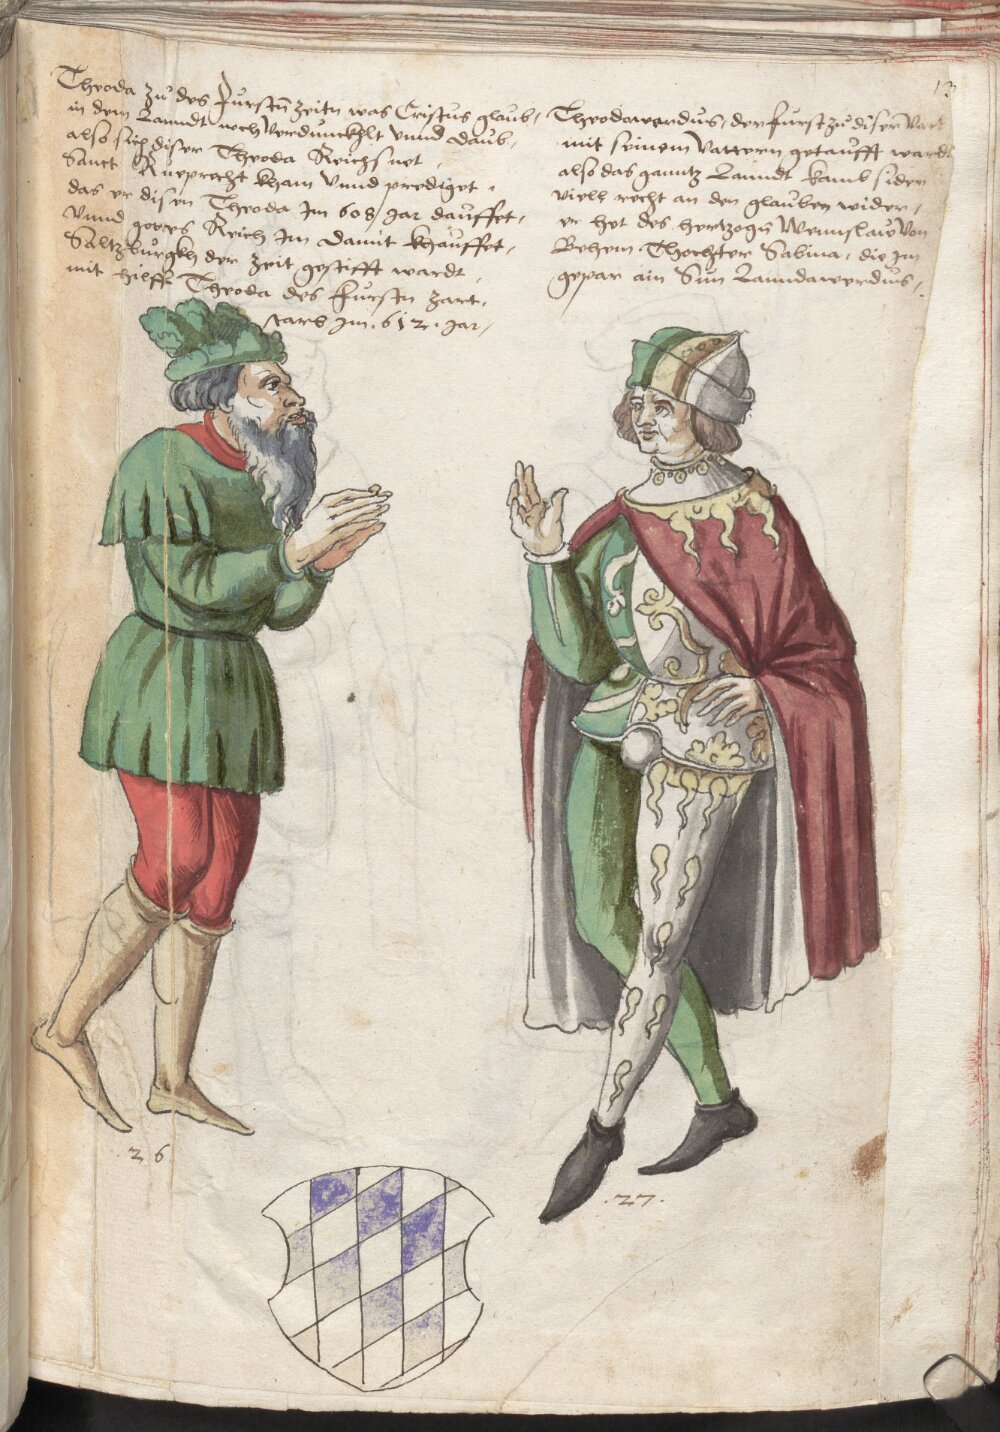 13
Theoda zu des Fursten zeitn was Cristus glaub,
in dem Lanndt noch Verdunckhlt unnd daub,
also sich diser Theoda Reichsnet,
Sanct Rueprecht kham Vnnd prediget,
das er disen Theoda Im 608 Jar dauffet,
Vnnd gottes Reich Im damit khauffet,
Saltzburgkh der Zeit gestifft wardt,
mit hilff Theoda des Fursten zart,
starb Im .612. Jar,
Theodawerdus, der furst zu diser Vart
mit seinem Vattern getaufft wardt
also das ganntz Lanndt kamb sider
viell recht an den glauben wider,
er het des hertzogn Wennslaw Von
Behem Thochter Sabina, die Im
gepar ain Sun Lanndawerdus,
26
.27.